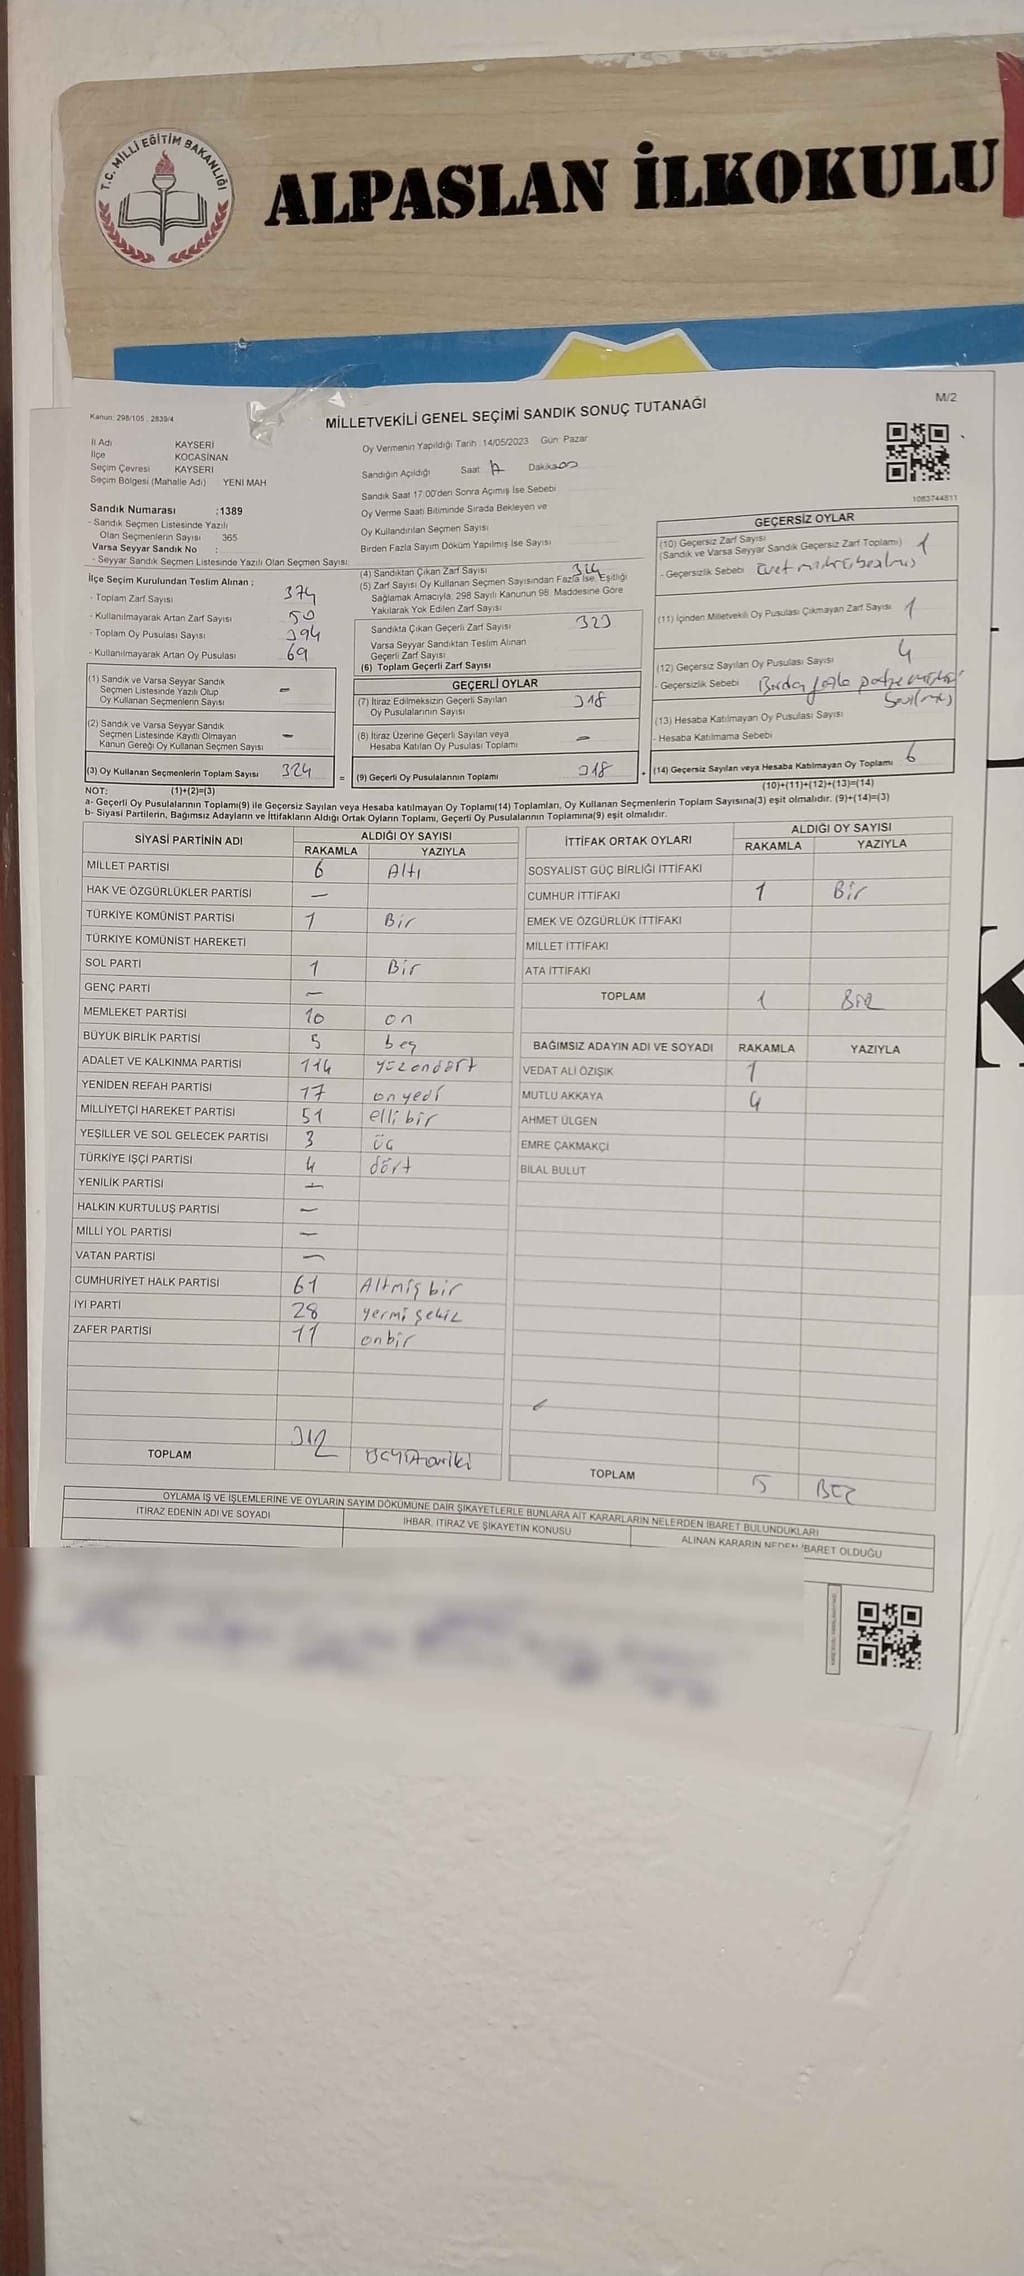 T.C. MİLLİ EĞİTİM BAKANLIĞI
ALPASLAN İLKOKULU
Kanun: 298/105 , 2839/4
MİLLETVEKİLİ GENEL SEÇİMİ SANDIK SONUÇ TUTANAĞI
M/2
İl Adı KAYSERİ
İlçe KOCASİNAN
Seçim Çevresi KAYSERİ
Seçim Bölgesi (Mahalle Adı) YENİ MAH
Oy Vermenin Yapıldığı Tarih : 14/05/2023 Gün: Pazar
Sandığın Açıldığı Saat 17 Dakika 00
Sandık Saat 17:00'den Sonra Açımış İse Sebebi
Oy Verme Saati Bitiminde Sırada Bekleyen ve
Oy Kullandırılan Seçmen Sayısı
Birden Fazla Sayım Döküm Yapılmış İse Sayısı
1083744811
Sandık Numarası :1389
- Sandık Seçmen Listesinde Yazılı
Olan Seçmenlerin Sayısı 365
Varsa Seyyar Sandık No :
- Seyyar Sandık Seçmen Listesinde Yazılı Olan Seçmen Sayısı
İlçe Seçim Kurulundan Teslim Alınan ;
- Toplam Zarf Sayısı 374
- Kullanılmayarak Artan Zarf Sayısı 50
- Toplam Oy Pusulası Sayısı 394
- Kullanılmayarak Artan Oy Pusulası 69
(1) Sandık ve Varsa Seyyar Sandık
Seçmen Listesinde Yazılı Olup
Oy Kullanan Seçmenlerin Sayısı -
(2) Sandık ve Varsa Seyyar Sandık
Seçmen Listesinde Kayıtlı Olmayan
Kanun Gereği Oy Kullanan Seçmen Sayısı -
(3) Oy Kullanan Seçmenlerin Toplam Sayısı 324
(4) Sandıktan Çıkan Zarf Sayısı 324
(5) Zarf Sayısı Oy Kullanan Seçmen Sayısından Fazla İse, Eşitliği
Sağlamak Amacıyla, 298 Sayılı Kanunun 98. Maddesine Göre
Yakılarak Yok Edilen Zarf Sayısı
Sandıkta Çıkan Geçerli Zarf Sayısı 323
Varsa Seyyar Sandıktan Teslim Alınan
Geçerli Zarf Sayısı
(6) Toplam Geçerli Zarf Sayısı
GEÇERLİ OYLAR
(7) İtiraz Edilmeksizin Geçerli Sayılan
Oy Pusulalarının Sayısı 318
(8) İtiraz Üzerine Geçerli Sayılan veya
Hesaba Katılan Oy Pusulası Toplamı -
= (9) Geçerli Oy Pusulalarının Toplamı 318
GEÇERSİZ OYLAR
(10) Geçersiz Zarf Sayısı
(Sandık ve Varsa Seyyar Sandık Geçersiz Zarf Toplamı) 1
- Geçersizlik Sebebi
(11) İçinden Milletvekili Oy Pusulası Çıkmayan Zarf Sayısı 1
(12) Geçersiz Sayılan Oy Pusulası Sayısı 4
- Geçersizlik Sebebi Birden fazla
(13) Hesaba Katılmayan Oy Pusulası Sayısı
- Hesaba Katılmama Sebebi
+ (14) Geçersiz Sayılan veya Hesaba Katılmayan Oy Toplamı 6
NOT: (1)+(2)=(3)
(10)+(11)+(12)+(13)=(14)
a- Geçerli Oy Pusulalarının Toplamı(9) ile Geçersiz Sayılan veya Hesaba katılmayan Oy Toplamı(14) Toplamları, Oy Kullanan Seçmenlerin Toplam Sayısına(3) eşit olmalıdır. (9)+(14)=(3)
b- Siyasi Partilerin, Bağımsız Adayların ve İttifakların Aldığı Ortak Oyların Toplamı, Geçerli Oy Pusulalarının Toplamına(9) eşit olmalıdır.
SİYASİ PARTİNİN ADI ALDIĞI OY SAYISI
RAKAMLA YAZIYLA
MİLLET PARTİSİ 6 Altı
HAK VE ÖZGÜRLÜKLER PARTİSİ -
TÜRKİYE KOMÜNİST PARTİSİ 1 Bir
TÜRKİYE KOMÜNİST HAREKETİ
SOL PARTİ 1 Bir
GENÇ PARTİ -
MEMLEKET PARTİSİ 10 on
BÜYÜK BİRLİK PARTİSİ 5 beş
ADALET VE KALKINMA PARTİSİ 114 yüzondört
YENİDEN REFAH PARTİSİ 17 onyedi
MİLLİYETÇİ HAREKET PARTİSİ 51 ellibir
YEŞİLLER VE SOL GELECEK PARTİSİ 3 üç
TÜRKİYE İŞÇİ PARTİSİ 4 dört
YENİLİK PARTİSİ -
HALKIN KURTULUŞ PARTİSİ -
MİLLİ YOL PARTİSİ -
VATAN PARTİSİ -
CUMHURİYET HALK PARTİSİ 61 Altmışbir
İYİ PARTİ 28 yermi sekiz
ZAFER PARTİSİ 11 onbir
TOPLAM 312
İTTİFAK ORTAK OYLARI ALDIĞI OY SAYISI
RAKAMLA YAZIYLA
SOSYALİST GÜÇ BİRLİĞİ İTTİFAKI
CUMHUR İTTİFAKI 1 Bir
EMEK VE ÖZGÜRLÜK İTTİFAKI
MİLLET İTTİFAKI
ATA İTTİFAKI
TOPLAM 1 BİR
BAĞIMSIZ ADAYIN ADI VE SOYADI RAKAMLA YAZIYLA
VEDAT ALİ ÖZIŞIK 1
MUTLU AKKAYA 4
AHMET ÜLGEN
EMRE ÇAKMAKÇI
BİLAL BULUT
TOPLAM 5 BEŞ
OYLAMA İŞ VE İŞLEMLERİNE VE OYLARIN SAYIM DÖKÜMÜNE DAİR ŞİKAYETLERLE BUNLARA AİT KARARLARIN NELERDEN İBARET BULUNDUKLARI
İTİRAZ EDENİN ADI VE SOYADI İHBAR, İTİRAZ VE ŞİKAYETİN KONUSU ALINAN KARARIN NEDEN İBARET OLDUĞU